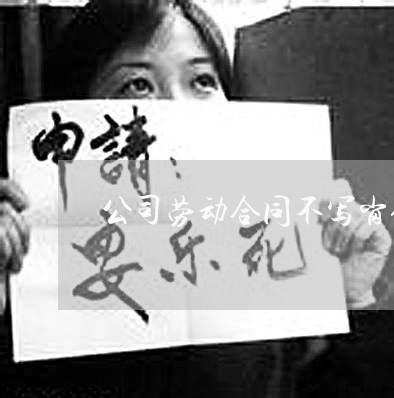 申請：
公司劳动合同不写有
安乐死